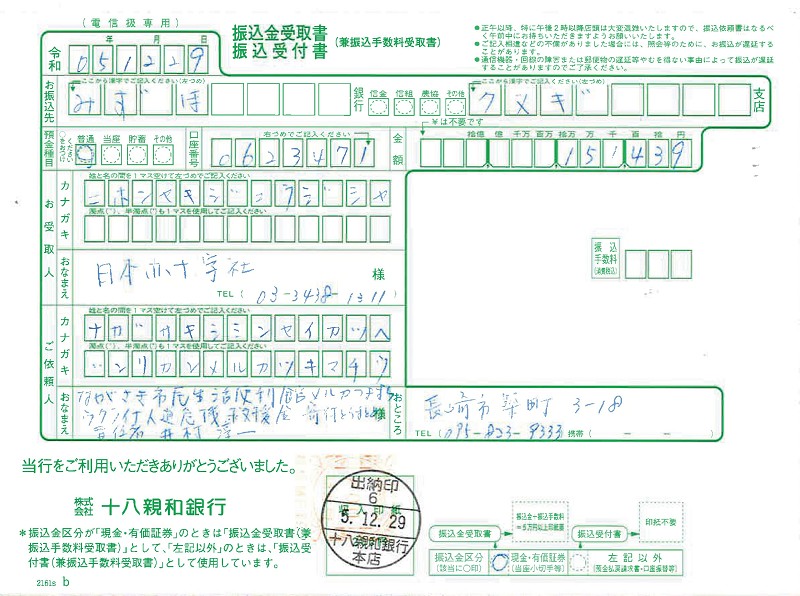 (電信扱専用)
振込金受取書
振込受付書
(兼振込手数料受取書)
●正午以降、特に午後2時以降店頭は大変混雑いたしますので、振込依頼書はなるべく午前中にお持ちいただきますようお願いします。
●ご記入相違などの不備がありました場合には、照会等のために、お振込が遅延することがあります。
●通信機器・回線の障害または郵便物の遅延等やむを得ない事由によって振込が遅延することがありますのでご了承ください。
令和 年 月 日
051229
お振込先
ここから漢字でご記入ください(左づめ)
みずほ
銀行 信金 信組 農協 その他
ここから漢字でご記入ください(左づめ)
クヌギ
支店
預金種目
○をおつけください
普通 当座 貯蓄 その他
口座番号
右づめでご記入ください
0623471
金額
¥は不要です
拾億 億 千万 百万 拾万 万 千 百 拾 円
151439
お受取人
カナガキ
姓と名の間を1マス空けて左づめでご記入ください
ニホンセキジュウジシャ
濁点(゛)、半濁点(゜)も1マスを使用してご記入ください
おなまえ
日本赤十字社
様
TEL(03-3438-1311)
振込手数料(消費税込)
ご依頼人
カナガキ
姓と名の間を1マス空けて左づめでご記入ください
ナガサキシミンセイカツベ
濁点(゛)、半濁点(゜)も1マスを使用してご記入ください
ンリカンメルカツキマチウ
おなまえ
ながさき市民生活便利館メルカつきまち
ウクライナ人道危機救援金 寄付
責任者 井村 淳一
様
おところ
長崎市築町 3-18
TEL(095-823-9333 携帯( - - )
当行をご利用いただきありがとうございました。
株式会社 十八親和銀行
*振込金区分が「現金・有価証券」のときは「振込金受取書(兼振込手数料受取書)」として、「左記以外」のときは、「振込受付書(兼振込手数料受取書)」として使用しています。
2161s b
収入印紙
出納印
6
5.12.29
十八親和銀行
本店
振込金受取書
振込金+振込手数料=5万円以上印紙要
振込受付書
印紙不要
振込金区分(該当に○印)
現金・有価証券(当座小切手等)
左記以外(預金払戻請求書・口座振替等)